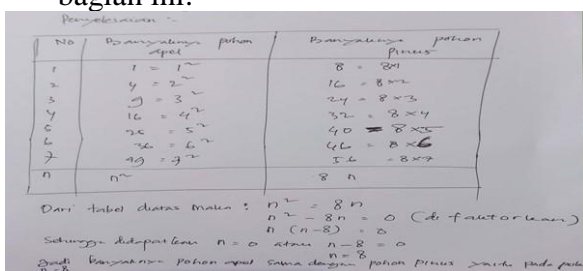 bagian ini.
Penyelesaian :-
No Banyaknya pohon apel Banyaknya pohon Pinus
1 1 = 1² 8 = 8x1
2 4 = 2² 16 = 8x2
3 9 = 3² 24 = 8x3
4 16 = 4² 32 = 8x4
5 25 = 5² 40 = 8x5
6 36 = 6² 46 = 8x6
7 49 = 7² 56 = 8x7
n n² 8 n
Dari tabel diatas maka : n² = 8n
n² - 8n = 0 (di faktorkan)
n (n-8) = 0
Sehingga didapatkan n = 0 atau n - 8 = 0
n = 8
Jadi banyaknya pohon apel sama dengan pohon pinus yaitu pada pada
n=8